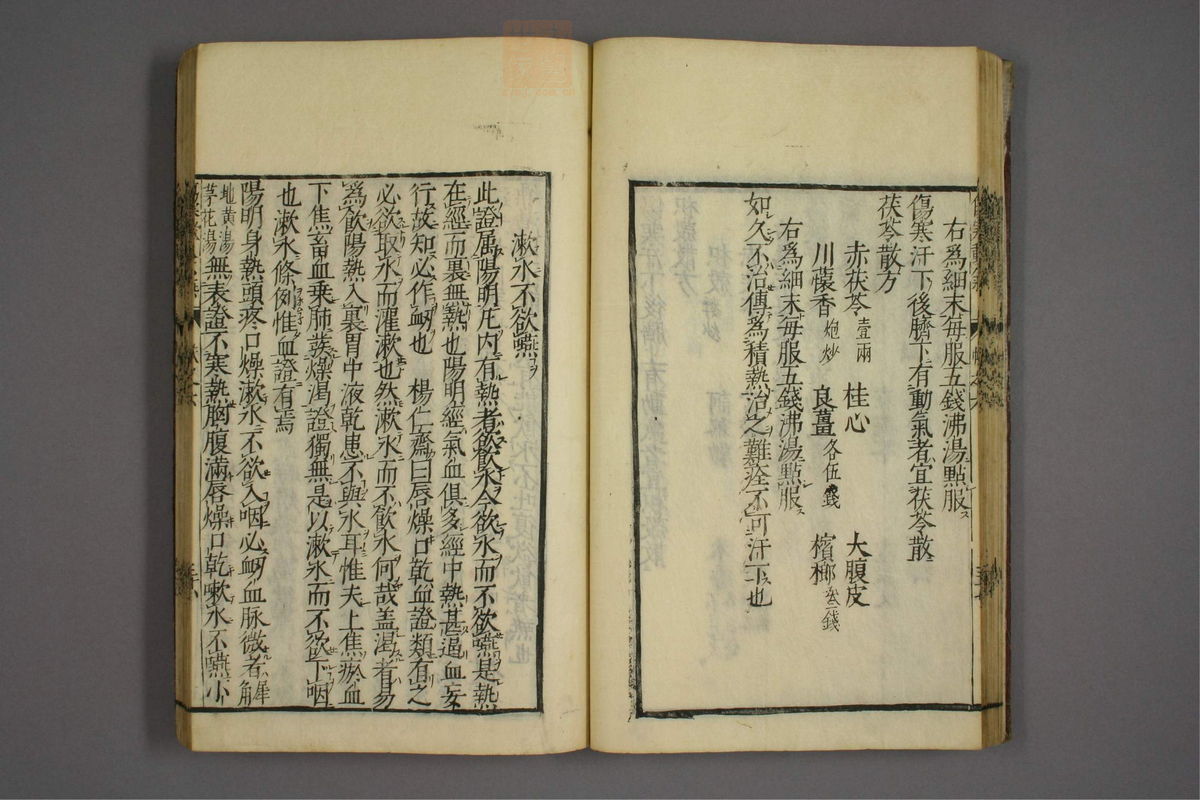 右爲細末每服五錢沸湯點服ス
傷寒汗下後臍下有動氣者宜茯苓散
茯苓散方
赤茯苓壹兩 桂心 大腹皮
川懷香炮炒 良薑各伍錢 檳榔叁錢
右爲細末每服五錢沸湯點服ス
如久不治傳爲積熱治之難痊不可汗下也
漱水不欲嚥
此證属陽明凡内有熱者欲飲水今欲水而不欲嚥是熱
在經而裏無熱也陽明經氣血俱多經中熱甚逼血妄
行故知必作衂也 楊仁齋曰唇燥口乾血證類有之
必欲取水而灌漱也然漱水而不飲水何哉盖渴者易
爲飲陽熱入裏胃中液乾患不與水耳惟夫上焦瘀血
下焦畜血乗肺燥渴證獨無是以漱水而不欲下咽
也漱水條例惟血證有焉
陽明身熱頭疼口燥漱水不欲入咽必衂血脉微者犀角
地黄湯茅花湯無表證不寒熱胸腹滿唇燥口乾漱水不嚥小